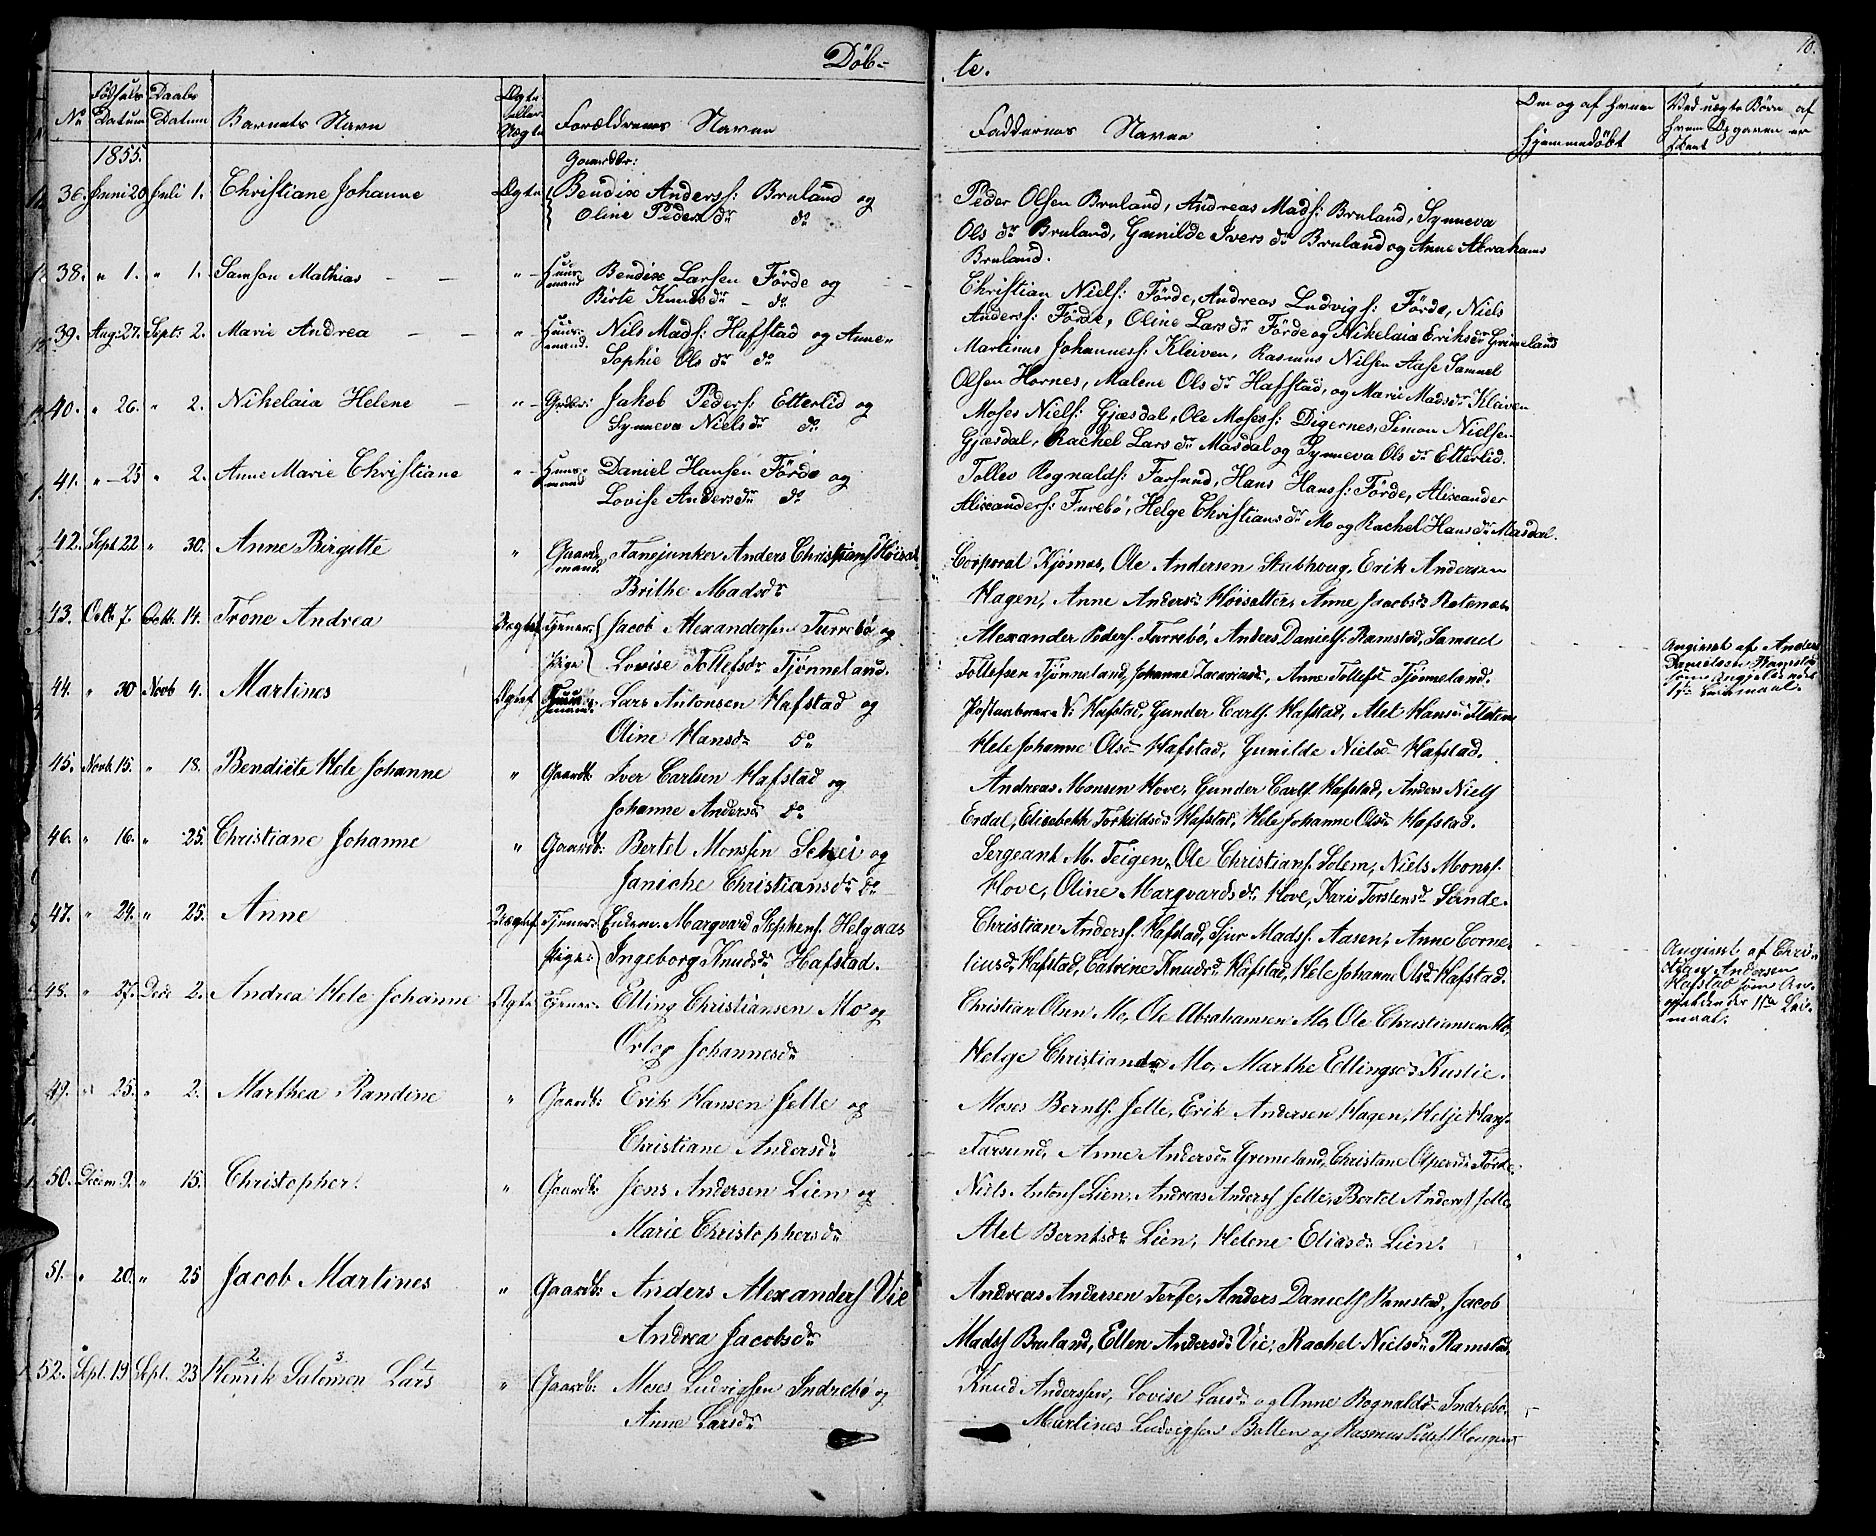 Döb-
te.
10.
No
Fødsels Datum
Daabs Datum
Barnets Navn
Ægte eller Uægte
Forældrenes Navne
Faddernes Navne
Om og af hvem hjemmedøbt
Ved uægte Børn af hvem Opgaven er skeet
1855.
36. Juni 20 Juli 1. Christiane Johanne Ægte Gaardbr: Bendix Anderss: Bruland og
Oline Peders dr do
Peder Olsen Bruland, Andreas Mads: Bruland, Synneva
Ols dr Bruland, Gunilde Ivers dr Bruland og Anne Abrahams
Bruland.
38. " 1. " 1. Samson Mathias " Huusmand Bendix Larsen Förde og
Birte Knuds dr - do
Christian Niels: Förde, Andreas Ludvigs: Förde, Niels
Anders: Förde, Oline Lars dr Förde og Nikelaia Eriks dr Grimeland
39. Aug: 27. Sept: 2. Marie Andrea " Huusmand. Nils Mads: Hafstad og Anne
Sophie Ols dr do
Martinus Johanness: Kleiven, Rasmus Nilsen Aase Samuel
Olsen Hornes, Malene Ols dr Hafstad, og Marie Mads dr Kleiven
40. " 26. " 2. Nikelaia Helene " Grdbr: Jakob Peders: Etterlid og
Synneva Niels dr do
Moses Niels: Gjæsdal, Ole Moses: Digernes, Simon Nielsen
Gjæsdal, Rachel Lars dr Masdal og Synneva Ols dr Etterlid.
41. " 25 " 2. Anne Marie Christiane " Huusmand Daniel Hansen Förde og
Lovise Anders dr do
Tollev Rognalds: Farsund, Hans Hans: Förde, Alixander
Alixanders: Furebö, Helge Christians dr Mo og Rachel Hans dr Masdal.
42. Sept 22 " 30. Anne Birgitte " Gaardmand. Fanejunker Anders Christens
Brithe Madsdr
Corporal Kjörnes, Ole Andersen Stubhoug, Erik Andersen
Hagen, Anne Andersdr Höisetter, Anne Jacobsdr
43. Octb 7. Octb. 14. Trone Andrea Uægte Tjener Jacob Alexandersen Furrebö og
Pige Lovise Tollefsdr Tjönneland.
Alexander Peders: Furrebö, Anders Daniels: Ramstad, Samuel
Tollefsen Tjönneland, Johanne Zacariasdr, Anne Tollefsd Tjönneland.
Angivet af Anders
Danielsen Ramstad
som Angjeldendes
1ste Leiermaal.
44. " 30 Novb 4. Martines Ægte Huusmand. Lars Antonsen Hafstad og
Oline Hansdr do
Postaabner N: Hafstad, Gunder Carls. Hafstad, Alet Hansdr
Hele Johanne Olsdr Hafstad, Gunilde Nielsd Hafstad.
45. Novb. 15. " 18. Bendicte Hele Johanne " Gaardb: Iver Carlsen Hafstad og
Johanne Andersdr do
Andreas Monsen Hove, Gunder Carlf Hafstad, Anders Nielf
Erdal, Elisabeth Torkildsdr Hafstad, Hele Johanne Olsdr Hafstad.
46. " 16. " 25. Christiane Johanne " Gaardb: Bertel Monssen Schei og
Janiche Christiansdr do
Sergeant M. Teigen, Ole Christians. Solem, Niels Mons:
Hove, Oline Marqvardsdr Hove, Kari Torstensdr Sande.
47. " 24. " 25. Anne Uægte Tjener Marqvard Stephens. Helgaas
Pige Ingeborg Knudsdr Hafstad.
Christian Anders. Hafstad, Sjur Mads. Aasen, Anne Corne-
liusd. Hafstad, Catrine Knudsd. Hafstad, Hele Johanne Olsdr Hafstad.
Angivet af Chri-
stian Andersen
Hafstad som An-
gjeldendes 1ste Leier-
maal.
48. " 27. Dece 2. Andrea Hele Johanne Ægte Tjener Elling Christiansen Mo og
Johannesdr
Christian Olsen Mo, Ole Abrahamsen Mo, Ole Christiansen Mo
Helge Christiansdr Mo, Marthe Ellingsdr KusLie.
49. " 25. " 2. Marthea Randine " Gaardb: Erik Hansen Jelle og
Christiane Andersdr
Moses Bernts. Jelle, Erik Andersen Hagen, Helje Hans.
Farsund, Anne Andersdr Gremeland, Christane Förde.
50. Decem 9. " 15. Christopher. " Gaardb: Jens Andersen Lien og
Marie Christophersdr
Niels Antonf Lien, Andreas Andersf Jelle, Bertel Andersf Jelle
Alet Berntsdr Lien, Helene Eliasdr Lien.
51. " 20. " 25 Jacob Martines " Gaardb: Anders Alexanderf Vie
Andrea Jacobsdr
Andreas Andersen Ferfe, Anders Danielf Ramstad, Jacob
Madsf Bruland, Ellen Andersdr Vie, Rachel Nielsdr Ramstad.
52. Sept. 19 Sept. 23 Henrik Salomon Lars " Gaardb: Moses Ludvigsen Indrebö og
2 3 1
Anne Larsdr
Knud Anderssen, Lovise Larsdr og Anne Rognaldsdr Indrebö
Martines Ludvigsen Botten og Rasmus